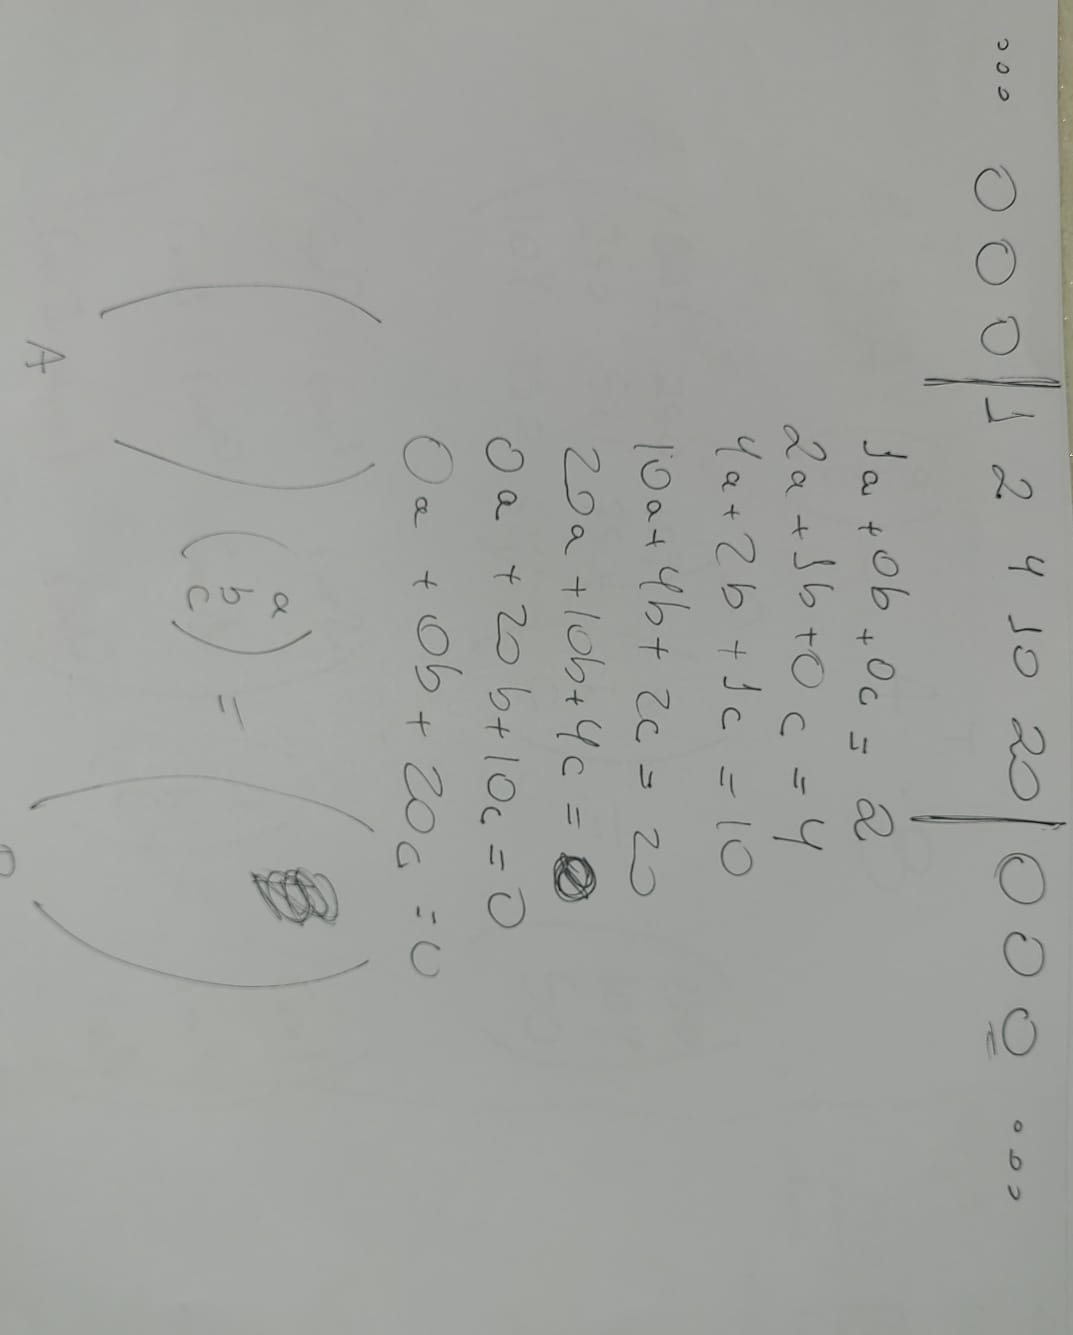 ... 0 0 0 | 1 2 4 10 20 | 0 0 0 ...
1a + 0b + 0c = 2
2a + 1b + 0c = 4
4a + 2b + 1c = 10
10a + 4b + 2c = 20
20a + 10b + 4c = 0
0a + 20b + 10c = 0
0a + 0b + 20c = 0
( ) (a b c) = ( )
A